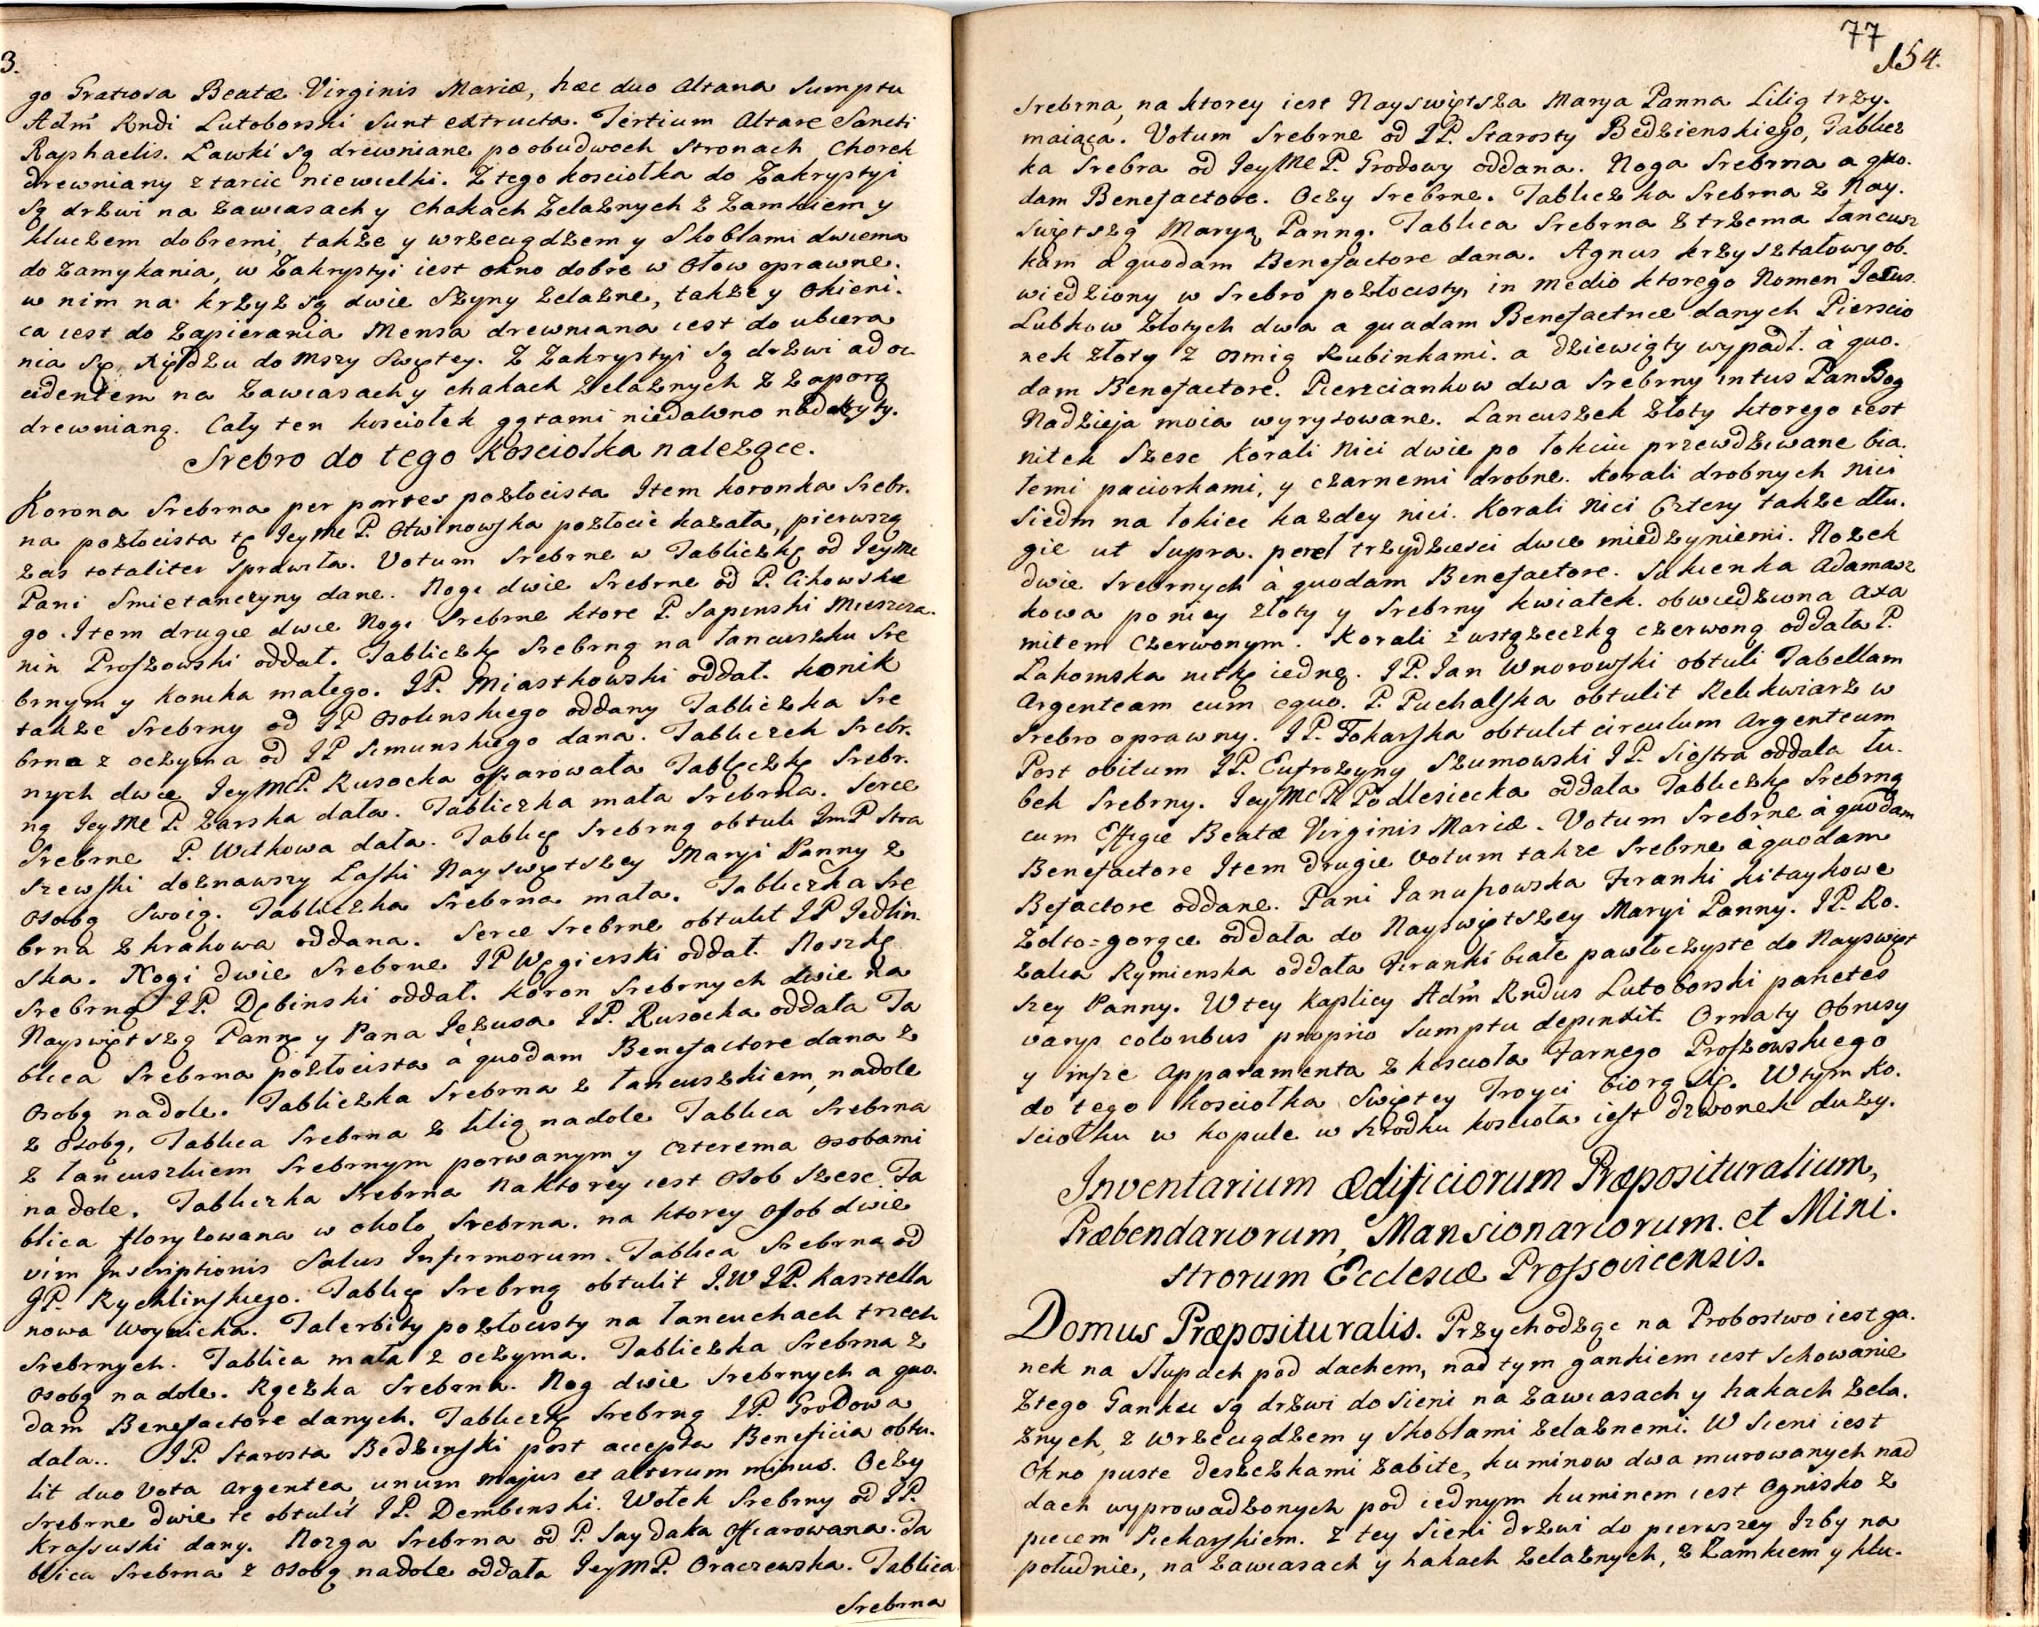 3.
go Gratiosa Beatæ Virginis Mariæ, hæc duo Altaria Sumptu
Adm Rndi Lutoborski Sunt extructa. Tertium Altare Sancti
Raphaelis. Lawki są drewniane po obudwoch stronach Chorek
drewniany z tarcic niewielki. Z tego kosciołka do Zakrystyi
Są drzwi na zawiasach y hakach Zelaznych z Zamkiem y
kluczem dobremi, także y wrzeciądzem y Skoblami dwiema
do zamykania, w Zakrystyi iest okno dobre w Ołow oprawne.
w nim na krzyż są dwie Szyny zelazne, także y okieni.
ca iest do zapierania Mensa drewniana iest do ubiera
nia Się Xiędzu do Mszy Swiętey. Z Zakrystyi są drzwi ad oc
cidentem na zawiasach y hakach Zelaznych z zaporą
drewnianą. Cały ten kosciołek gątami niedawno nadkryty.
Srebro do tego Kosciołka nalezące.
Korona Srebrna per partes pozłocista Item koronka Srebr.
na pozłocista tę Jey Mc P. Otwinowska pozłocić kazała, pierwszą
zas totaliter sprawiła. Votum Srebrne w Tabliczkę od Jey Mc
Pani Smietanczyny dane. Nogi dwie Srebrne od P. Cikowskie
go. Item drugie dwie Nogi Srebrne ktore P. Sapinski Mieszcza.
nin Proszowski oddał. Tabliczkę Srebrną na łancuszku Sre
brnym y konika małego. JP. Miastkowski oddał. konik
także Srebrny od JP Osolinskiego oddany Tabliczka Sre
brna z oczyma od JP Simunskiego dana. Tabliczek Srebr.
nych dwie Jey Mc P. Rusocka offiarowała Tabliczkę Srebr.
ną Jey Mc P. Zarska dała. Tabliczka mała Srebrna. Serce
Srebrne P. Witkowa dała. Tablicę Srebrną obtuli Jm P Stra
szewski doznawszy Łaski Nayswiętszey Maryi Panny z
osobą Swoią. Tabliczka Srebrna mała. Tabliczka Sre
brna z krakowa oddana. Serce Srebrne obtulit JP Jedlin.
ska. Nogi dwie Srebrne JP Węgierski oddał. Noszkę
Srebrną JP. Dębinski oddał. Koron Srebrnych dwie na
Nayswiętszą Pannę y Pana Jezusa JP. Rusocka oddała Ta
blica Srebrna pozłocista à quodam Benefactore dana z
Osobą na dole. Tabliczka Srebrna z łancuszkiem, na dole
z Osobą, Tablica Srebrna z lilią na dole Tablica Srebrna
z łancuszkiem Srebrnym porwanym y czterema osobami
na dole. Tabliczka Srebrna na ktorey iest Osob Szesc Ta
blica florysowana w około Srebrna. na ktorey Osob dwie
vim Inscriptionis Salus Infirmorum. Tablica Srebrna od
JP. Rychlinskiego. Tablicę Srebrną obtulit J.W JP. kasztella
nowa Woynicka. Talerbity pozłocisty na łancuchach trzech
Srebrnych. Tablica mała z oczyma. Tabliczka Srebrna z
osobą na dole. Rączka Srebrna. Nog dwie Srebrnych a quo.
dam Benefactore danych. Tabliczkę Srebrną JP. Grodowa
dała.. JP. Starosta Bedzinski post accepta Beneficia obtu.
lit duo Vota argentea unum majus et alterum minus. Oczy
Srebrne dwie te obtulit JP. Dembinski. Wołek Srebrny od JP.
Krassuski dany. Nozga Srebrna od P. Saydaka offiarowana. Ta
blica Srebrna z osobą na dole oddała Jey M P. Oraczewska. Tablica
Srebrna
77
154.
Srebrna, na ktorey iest Nayswiętsza Marya Panna Lilią trzy.
maiąca. Votum Srebrne od JP. Starosty Bedzienskiego, Tablicz
ka Srebra od Jey Mc P. Grodowy oddana. Noga Srebrna a quo.
dam Benefactore. Oczy Srebrne. Tabliczka Srebrna z Nay.
swiętszą Maryą Panną. Tablica Srebrna z trzema łancusz
kam a quodam Benefactore dana. Agnus krzysztalowy ob.
wiedziony w Srebro pozłocisty, in medio ktorego Nomen Jezus.
Lubkow Złotych dwa a quadam Benefactrice danych Pierscio
nek złoty z osmią Rubinkami. a dziewiąty wypadł. à quo.
dam Benefactore. Pierscionkow dwa Srebrny intus Pan Bog
Nadzieja moia wyrysowane. Lancuszek złoty ktorego iest
nitek Szesc Korali Nici dwie po łokciu przewdziwane bia.
łemi paciorkami, y czarnemi drobne. korali drobnych Nici
Siedm na łokiec kazdey nici. Korali Nici Cztery także dłu.
gie ut Supra. pereł trzydziesci dwie miedzyniemi. Nozek
dwie Srebrnych à quodam Benefactore. Sukienka Adamasz
kowa po niey złoty y Srebrny kwiatek. obwiedziona axa
mitem Czerwonym. Korali z wstązeczką czerwoną oddała P.
Lakomska nitkę iedną. JP. Jan Wnorowski obtuli Tabellam
Argenteam cum equo. P. Puchalska obtulit Relikwiarz w
Srebro oprawny. JP. Tokarska obtulit circulum Argenteum
Post obitum JP. Eufrozyny Szumowski JP. Siostra oddała łu.
bek Srebrny. Jey Mc P. Podlesiecka oddała Tabliczkę Srebrną
cum Effigie Beatæ Virginis Mariæ. Votum Srebrne à quodam
Benefactore Item drugie Votum także Srebrne à quodam
Befactore oddane. Pani Janussowska Firanki kitaykowe
Żołto=gorące oddała do Nayswiętszey Maryi Panny. JP. Ro.
zalia Rymienska oddała Firanki białe pawłoczyste do Nayswięt
szey Panny. W tey Kaplicy Adm Rndus Lutoborski parietes
varys coloribus proprio Sumptu depinxit. Ornaty Obrusy
y insze apparamenta z kosciola Farnego Proszowskiego
do tego kosciołka Swiętey Troyci biorą się. W tym ko.
sciołku w kopule w srodku kosciola iest dzwonek duzy.
Inventarium ædificiorum Præposituralium,
Præbendariorum, Mansionariorum. et Mini.
strorum Ecclesiæ Prossovicensis.
Domus Præposituralis. Przychodząc na Probostwo iest ga.
nek na Słupach pod dachem, nad tym gankiem iest Schowanie
Z tego Ganku są drzwi do sieni na zawiasach y hakach Zela.
znych, z wrzeciądzem y Skoblami zelaznemi. W Sieni iest
Okno puste deszczkami zabite, kuminow dwa murowanych nad
dach wyprowadzonych pod iednym kuminem iest Ognisko z
piecem Piekarskiem. z tey Sieni drzwi do pierwszey Izby na
południe, na zawiasach y hakach Zelaznych, z Zamkiem y klu.